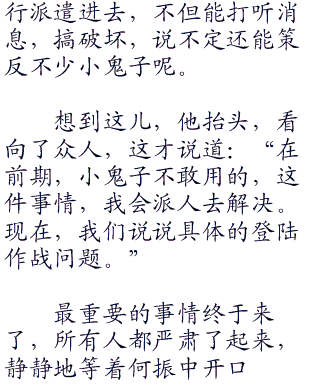 行派遣进去，不但能打听消
息，搞破坏，说不定还能策
反不少小鬼子呢。
想到这儿，他抬头，看
向了众人，这才说道：“在
前期，小鬼子不敢用的，这
件事情，我会派人去解决。
现在，我们说说具体的登陆
作战问题。”
最重要的事情终于来
了，所有人都严肃了起来，
静静地等着何振中开口